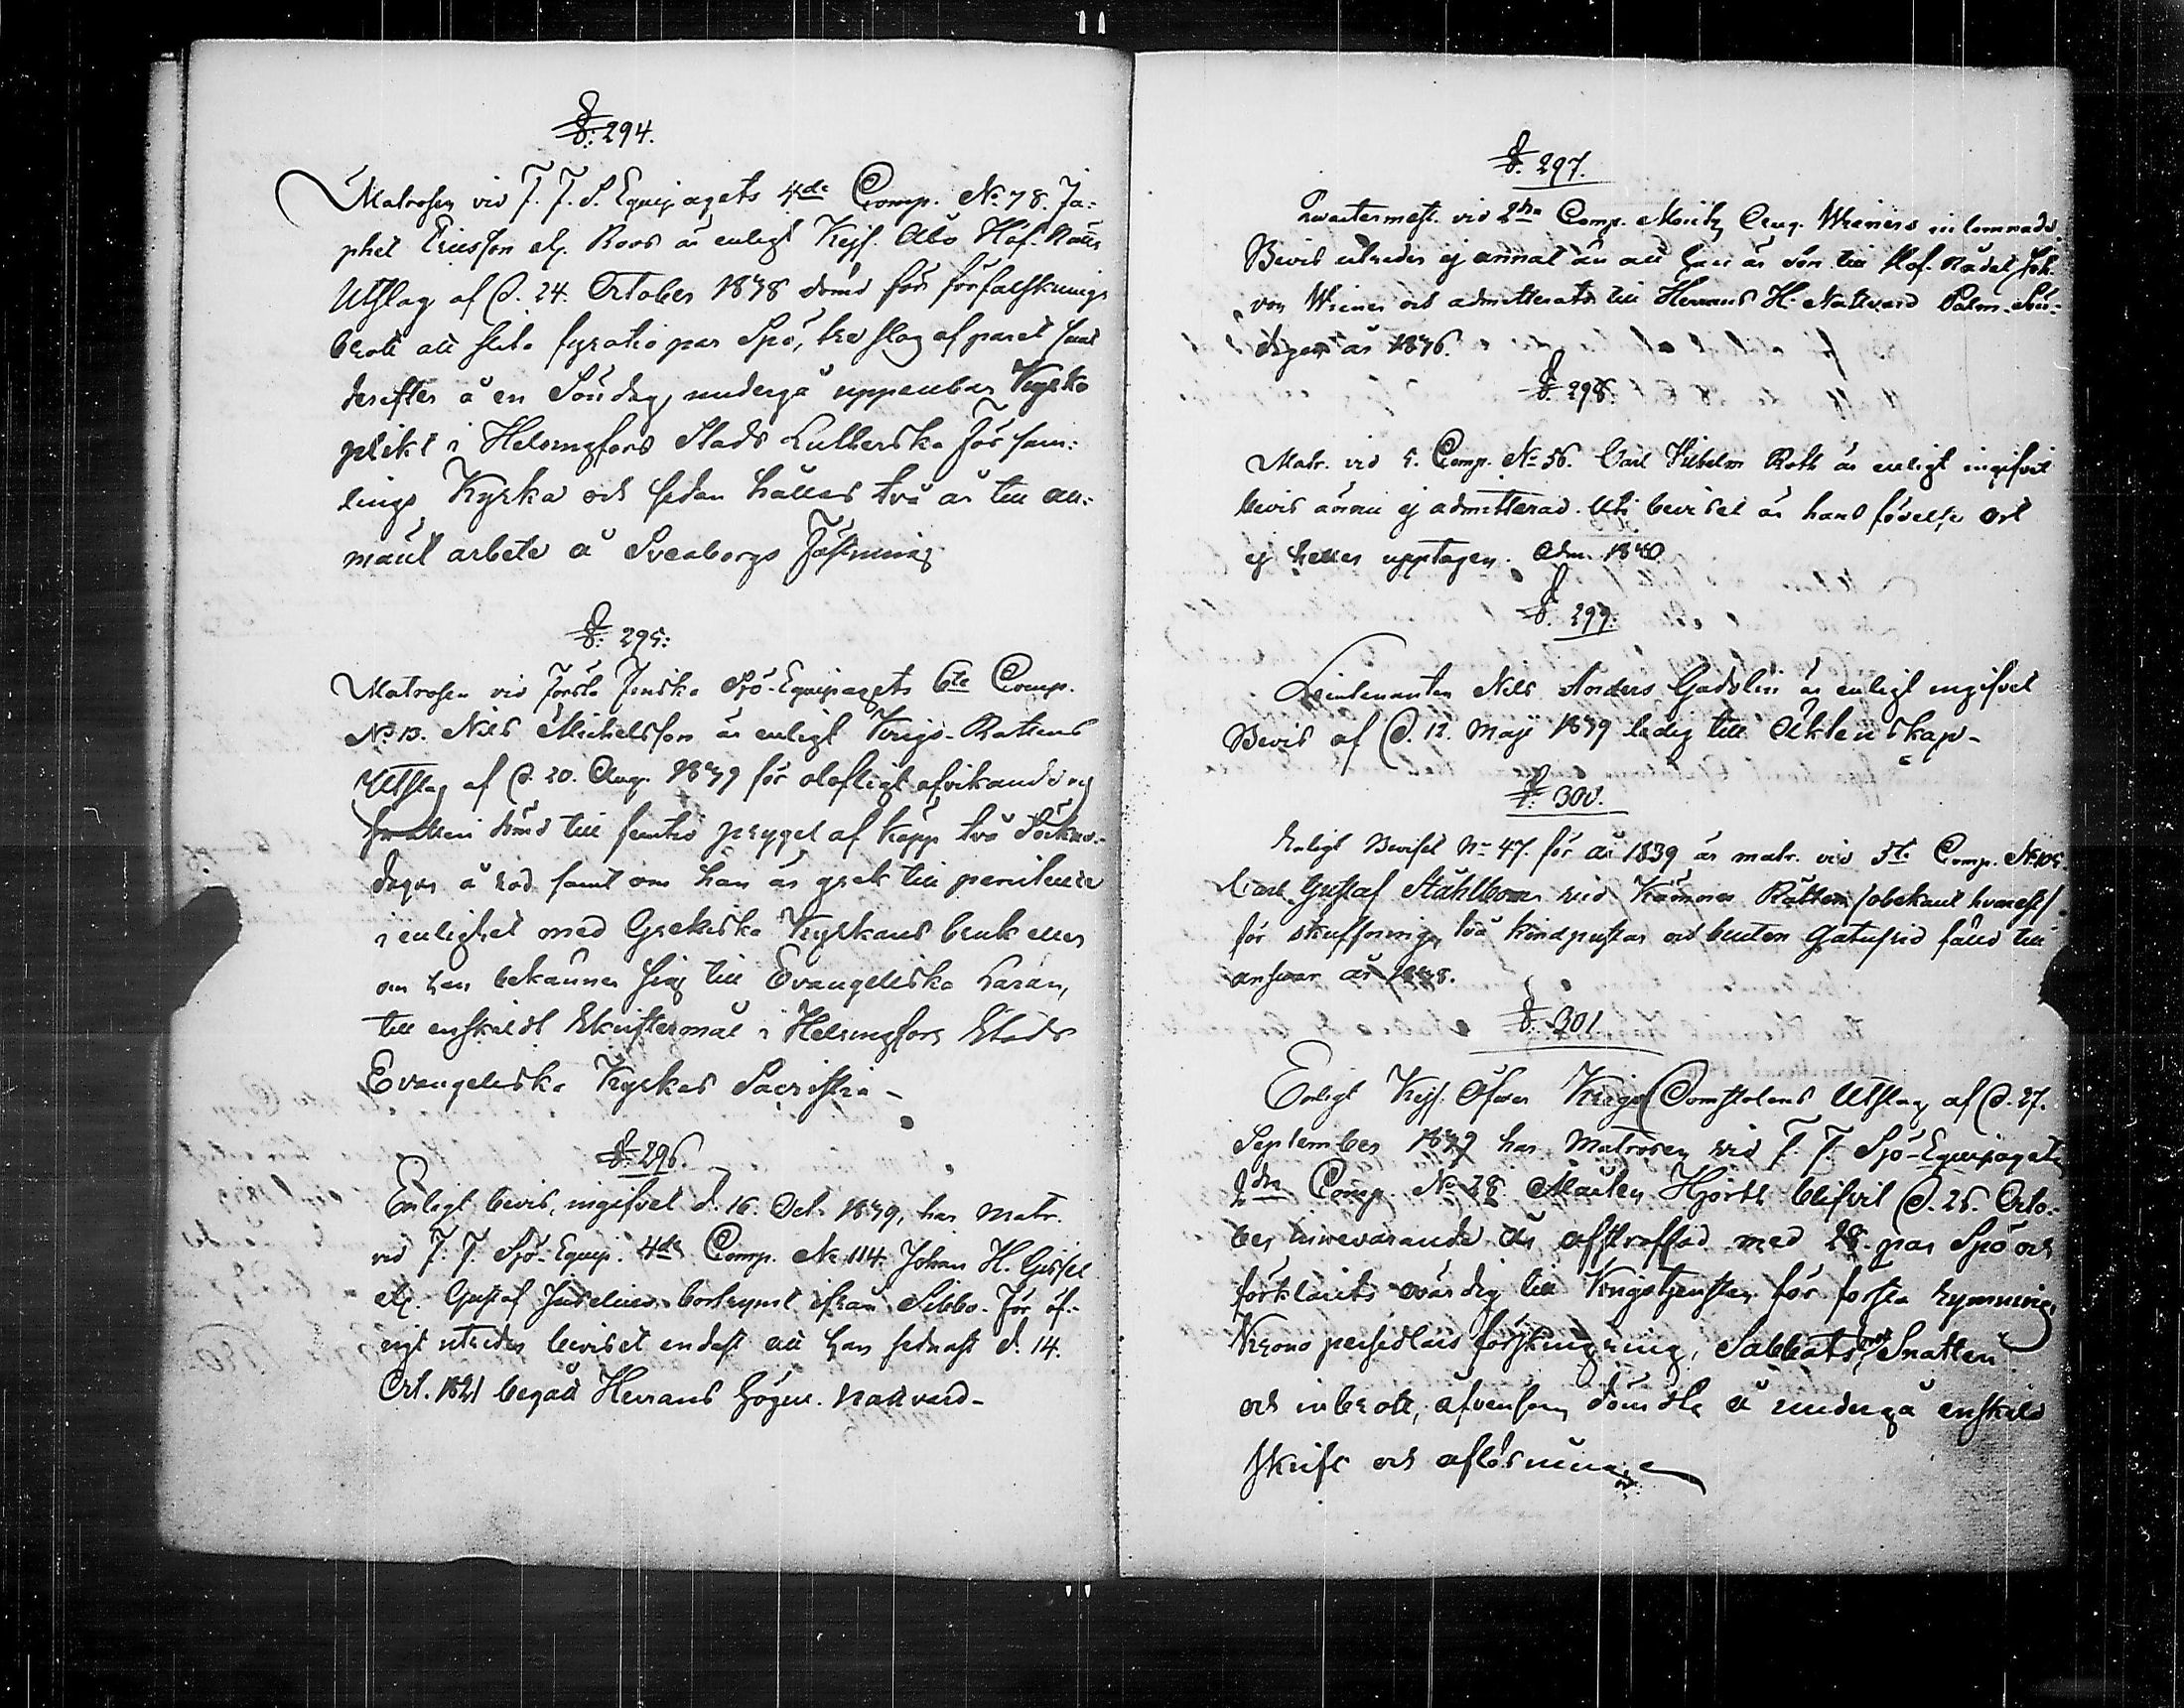 §. 294.
Matrosen vid F. F. S. Equipagets 4de Comp. No 78. Ja-
phet Ericsson elr. Roos är enligt Kejs. Åbo Hof-Rätts
Utslag af d. 24. October 1838 dömd för förfalsknings
brott att slita fyratio par Spö, tre slag af paret samt
derefter å en Söndag undergå uppenbar Kyrko
plikt i Helsingfors Stads Lutherska Försam-
lings Kyrka och sedan hållas två år till all-
mänt arbete å Sveaborgs Fästning
§. 295.
Matrosen vid Första Finska Sjö-Equipagets 6te Comp.
No 13. Nils Michelsson är enligt Krigs-Rättens
Utslag af d. 20. Aug. 1839 för olofligt afvikande och
snatteri dömd till femtio prygel af käpp två Söckne-
dagar å rad samt om han är grek till penitence
i enlighet med Grekiska Kyrkans bruk eller
om han bekänner sig till Evangeliska Läran,
till enskildt Skriftermål i Helsingfors Stads
Evangeliska Kyrkas Sacristia -
§. 296.
Enligt bevis, ingifvet d. 16. Oct. 1839, har matr.
vid F. F. Sjö-Equip. 4de Comp. No 114 Johan H.
elr. Gustaf bortrymt ifrån Sibbo. För öf-
rigt utreder beviset endast att han sednast d. 14.
Oct. 1821 begått Herrans högw. nattvard -
§. 297.
Quartermast. vid 2dra Comp. Moritz Aug. Wrieners inlemnade
Bevis utreder ej annat än att han är son till Hof-Rådet Joh.
von Wriener och admitterats till Herrans H. Nattvard Palm-Sön-
dagen år 1836.
§. 298.
Matr. vid 5. Comp. No 56. Carl Vilhelm Roth är enligt ingifvit
bevis ännu ej admitterad. Uti beviset är hans födelse ort
ej heller upptagen. Adm. 1840.
§. 299.
Lieutenanten Nils Anders Gadolin är enligt ingifvet
Bevis af d. 12. Maji 1839 ledig till Äktenskap -
§. 300.
Enligt Beviset No 47. för år 1839 är matr. vid 5te Comp. No 105.
Carl Gustaf Ståhlbom vid Kämners Rätten /obekant hvarest/
för skuffning, två kindpustar och bruten Gatufrid fälld till
answar år 1838.
§. 301.
Enligt Kejs. Öfver Krigs Domstolens Utslag af d. 27.
September 1839 har Matrosen vid F. F. Sjö-Equipagets
2dra Comp. No 28 Mårten Hjorth blifvit d. 26. Octo-
ber innevarande år afstraffad med 28 par Spö och
förklarats ovärdig till Krigstjensten för första rymning,
Krono persedlars förskingring, Sabbatsbrott, Snatteri
och inbrott, äfvensom dömdts å undergå enskild
skrift och aflösning